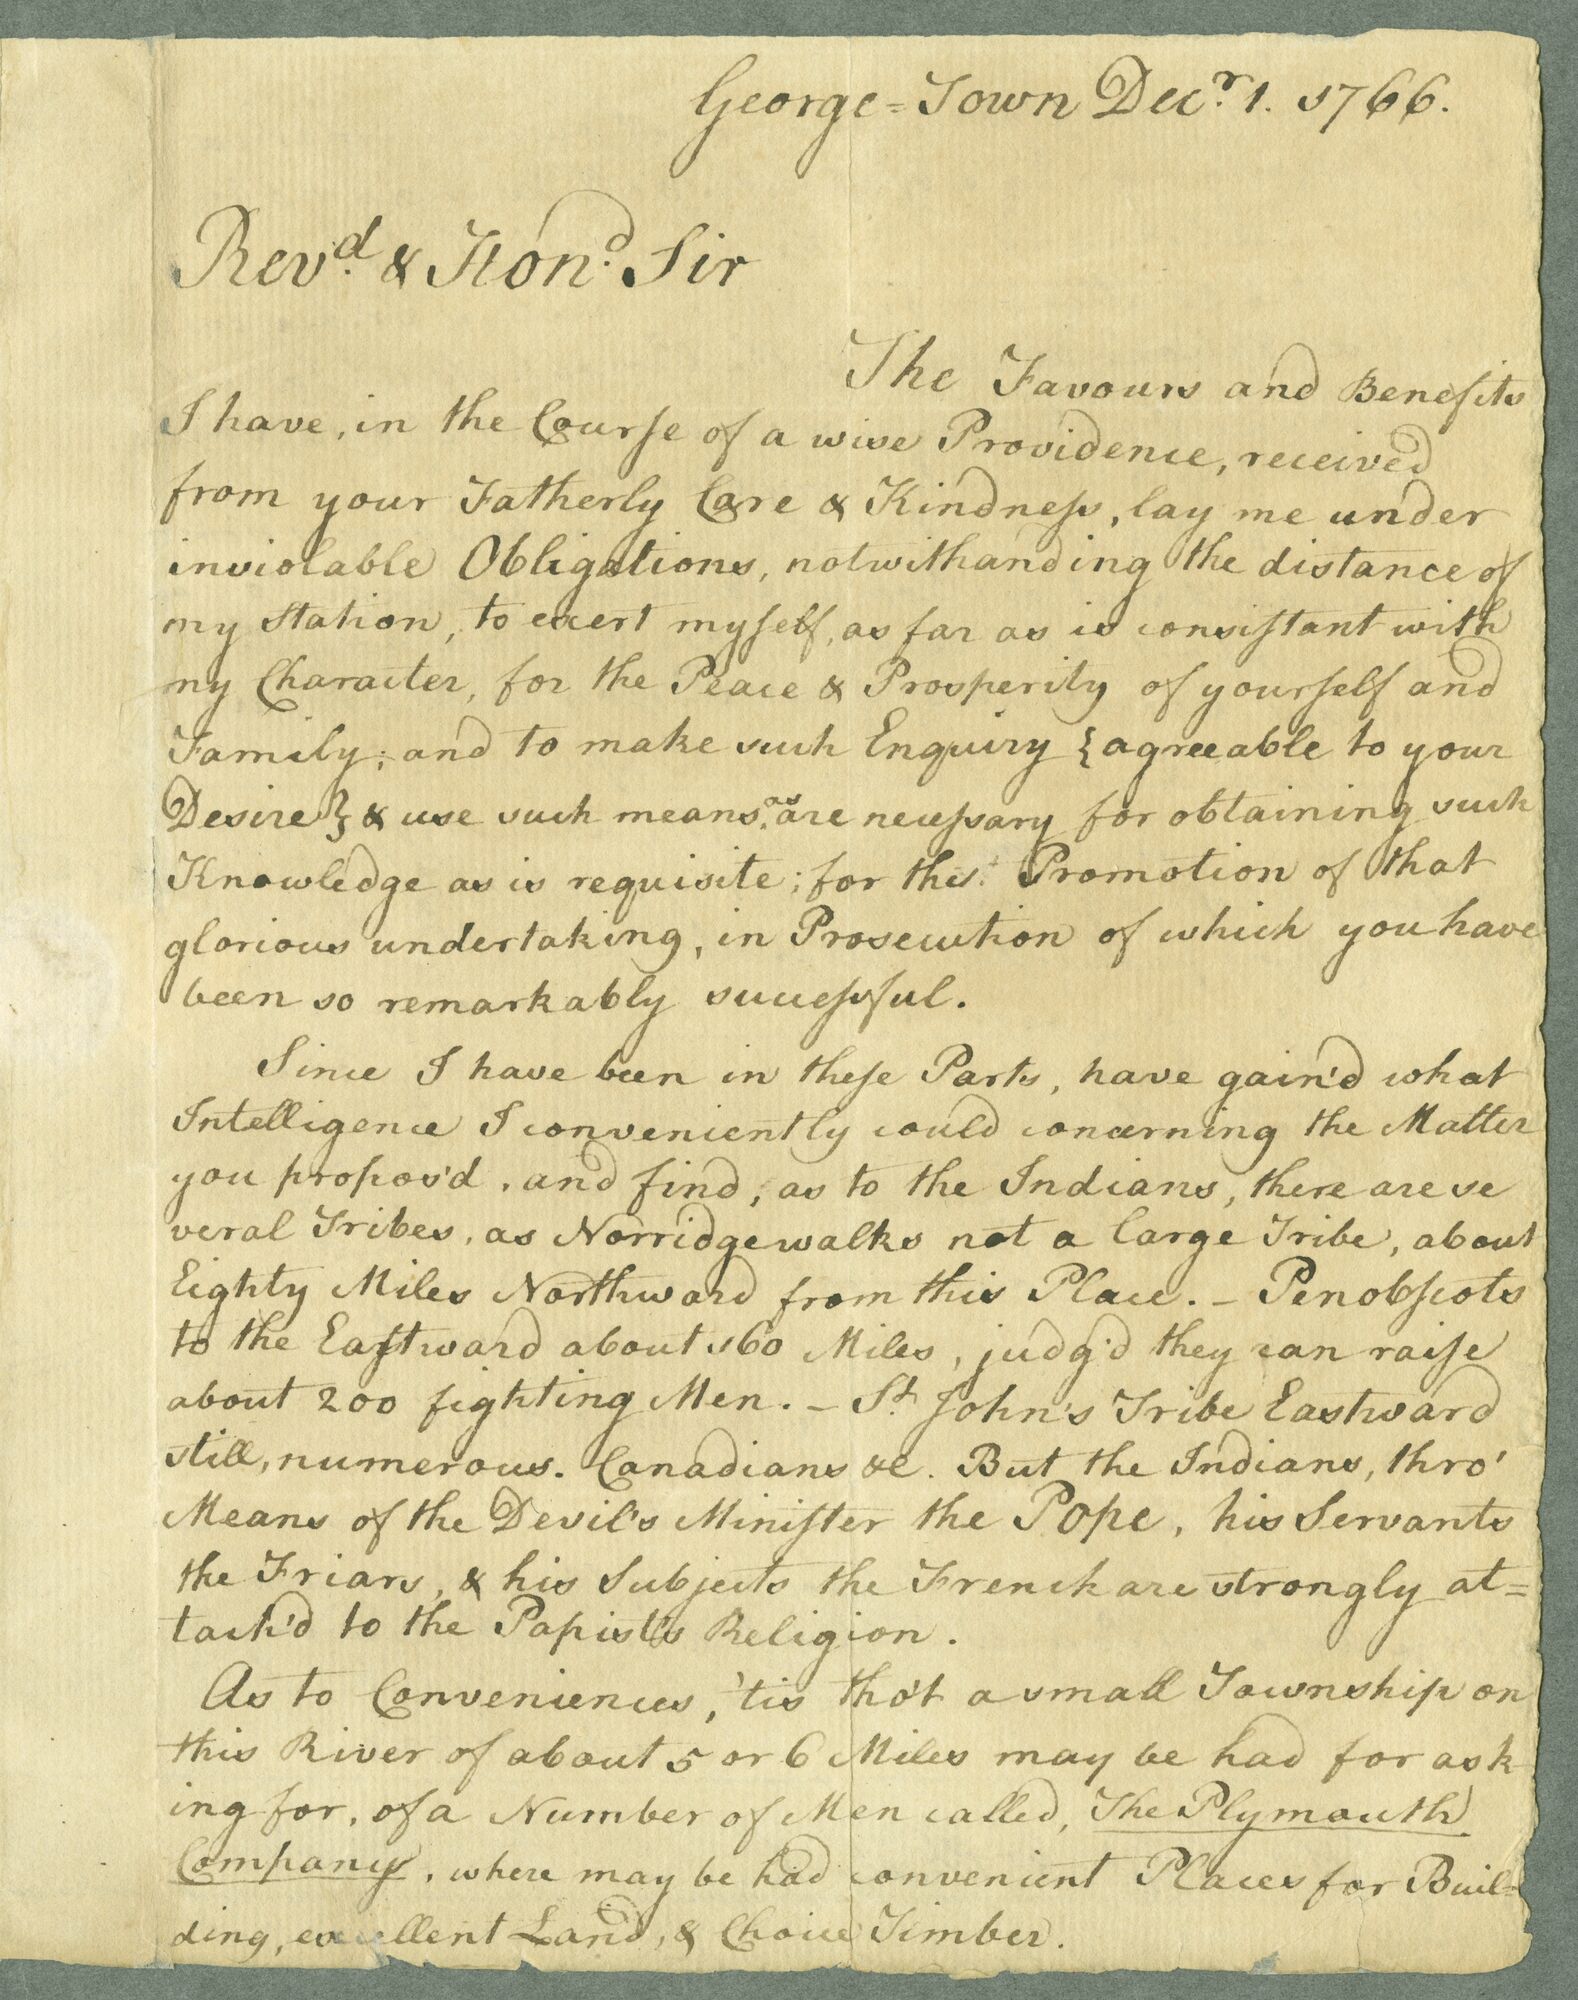 George=Town Decr. 1. 1766.
Revd. & Hond. Sir
The Favours and Benefits
I have, in the Course of a wise Providence, received
from your Fatherly Care & Kindness, lay me under
inviolable Obligations, notwithanding the distance of
my Station, to exert myself, as far as is consistant with
my Character, for the Peace & Prosperity of yourself and
Family; and to make such Enquiry {agreeable to your
Desire} & use such means, as are necessary for obtaining such
Knowledge as is requisite; for the Promotion of that
glorious undertaking, in Prosecution of which you have
been so remarkably successful.
Since I have been in these Parts, have gain'd what
Intelligence I conveniently could concerning the Matter
you propos'd, and find, as to the Indians, there are se
veral Tribes, as Norridgewalks not a large Tribe, about
Eighty Miles Northward from this Place. – Penobscots
to the Eastward about 160 Miles, judg'd they can raise
about 200 fighting Men. – St. John's Tribe Eastward
still, numerous. Canadians &c. But the Indians, thro'
Means of the Devil's Minister the Pope, his Servants
the Friars, & his Subjects the French are strongly at=
tach'd to the Papist's Religion.
As to Conveniences, 'tis tho't a small Township on
this River of about 5 or 6 Miles may be had for ask
ing for, of a Number of Men called, The Plymouth
Company, where may be had convenient Places for Buil=
ding, excellent Land, & Choice Timber.